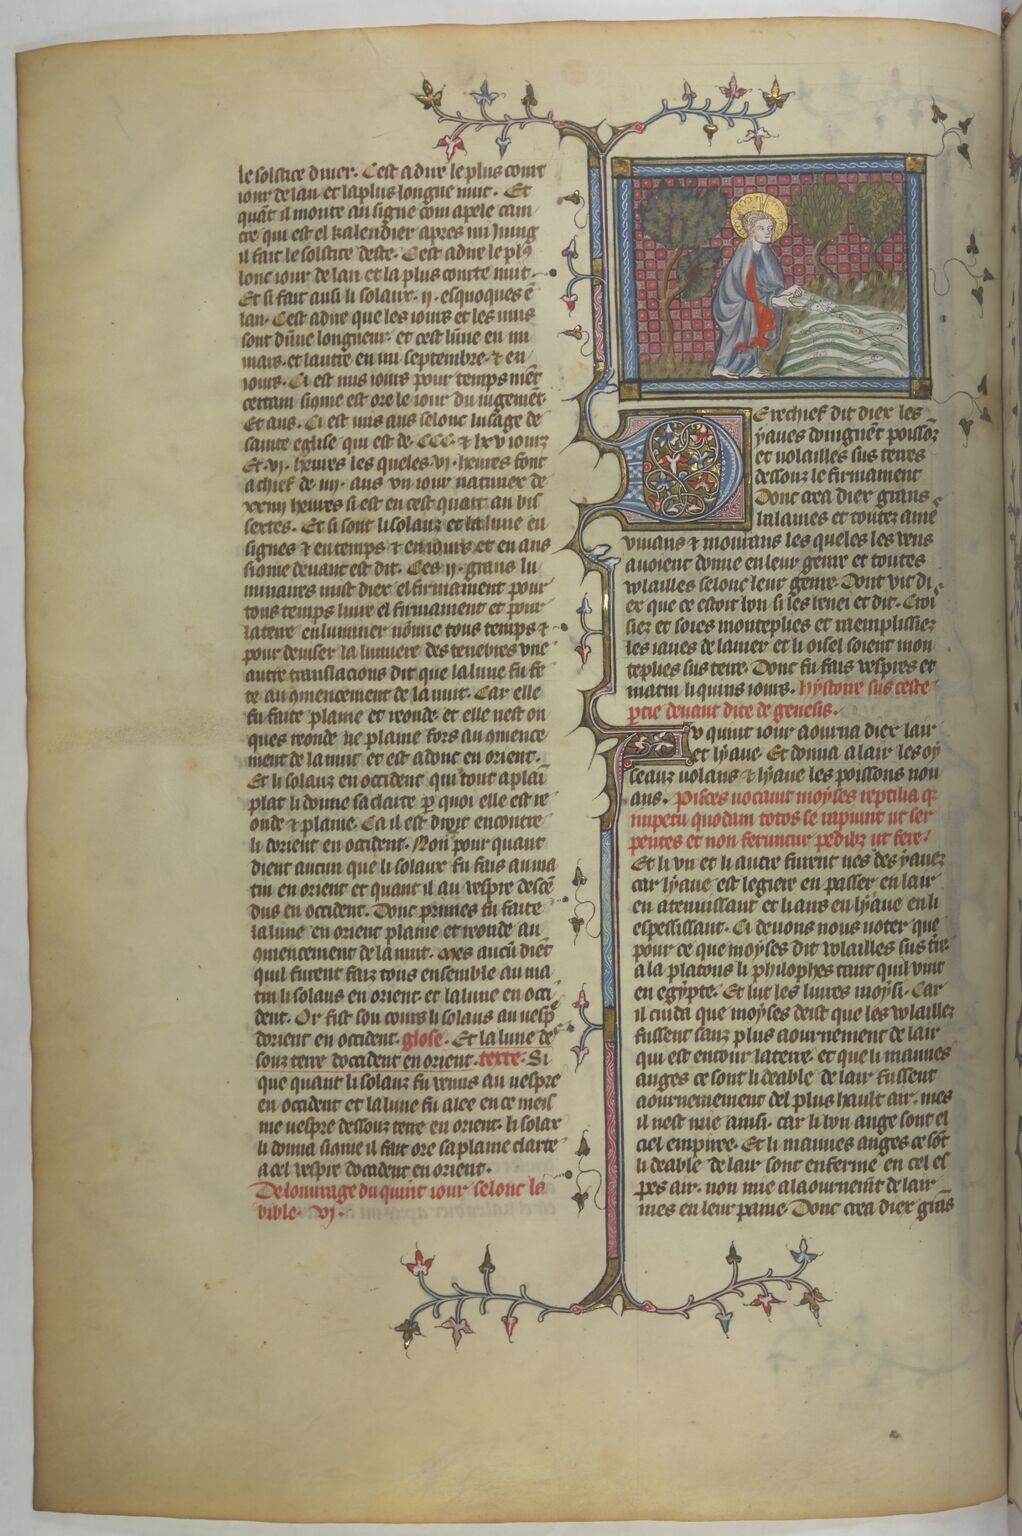 le solstice diuer. Cest a dire le plus court
iour de lan et la plus longue nuit. Et
quāt il monte au signe com apele can
cre qui est el kalendier apres mi Juing
il fait le solstice deste. Cest a dire le pl9
lonc iour de lan et la plus courte nuit.
Et si fait ausi li solaux .ij. esquoques ē
lan. Cest a dire que les iours et les nuis
sont dune longueur. et cest lune en mi
mars. et lautre en mi septembre. & en
iours. Ci est mis iours pour temps ment
certain si9me est ore le iour du iugement.
Et ans. Ci est mis ans selonc lusage de
sainte eglise qui est de .CCC. & lxv iours
Et .vj. heures les queles .vi. heures font
a chief de .iiij. ans vn iour naturier de
xxiiij heures si est en cest quart an bis
sextes. Et si sont li solaus et la lune en
signes & en temps & en iours et en ans
si9me deuant est dit. Ces .ij. grans lu
minaires mist diex el firmament pour
tous temps luire el firmament et pour
la terre enluminer nōmie tous temps &
pour deuiser la lumiere des tenebres vne
autre translacions dit que la lune fu fe
te au 9mencement de la nuit. Car elle
fu faite plaine et reonde et elle nest on
ques reonde ne plaine fors au 9mence
ment de la nuit et est adont en orient.
Et li solaus en occident qui tout a plai
plat li donne sa clarte p quoi elle est re
onde & plaine. Ca il est droit encontre
li dorient en occident. Non pour quant
dient aucun que li solaux fu fais au ma
tin en orient et quant il au vespre descē
dus en occident. Donc primes fu faite
la lune en orient plaine et reonde au
9mencement de la nuit. Mes aucū dient
quil furent faiz tous ensemble au ma
tin li solaus en orient et la lune en occi
dent. Or fist son cours li solaus au vesp
dorient en occident. glose. Et la lune de
souz terre doccident en orient. texte. Si
que quant li solauz fu venus au vespre
en occident et la lune fu alee en ce meis
me vespre dessouz terre en orient. li solax
li donna si9me il fait ore sa plaine clarte
a cel vespre doccident en orient.
De louurage du quint iour selonc la
bible. vj.
Derechief dit diex les
yaues doingnent poissoz
et uolailles sus terres
dessouz le firmament
Donc crea diex grans
balaines et toutez ame
viuans & mouuans les queles les yaus
auoient donne en leur genre et toutes
volailles selonc leur genre. Dont vit di
ex que ce estoit bon si les benei et dit. Croi
siez et soies monteplies et raemplissiez
les iaues de la mer et li oisel soient mon
teplies sus terre. Donc fu fais vespres et
matin li quins iours. hystoire sus ceste
p̄tie deuant dite de genesis.
Au quint iour aourna diex lair
et lyaue. Et donna a lair les oy
seaus uolans & lyaue les poissons noi
ans. Pisces uocauit moyses reptilia q
inpetu quodam totos se rapiunt ut ser
pentes et non feruntur pedibz ut fere.
Et li vn et li autre furent nes des yauez
car lyaue est legiere en passer en lair
en atenuissant et li airs en lyaue en li
espessissant. Ci deuons nous noter que
pour ce que moyses dit volailles sus tre
a la platons li philophes tant quil vint
en egypte. Et lut les liures moysi. Car
il cuida que moyses deist que les volaillez
fussent sanz plus aournement de lair
qui est entour la terre. et que li mauues
anges ce sont li deable de lair fussent
aournemement del plus hault air. mes
il nest mie ainsi. car li bon ange sont el
ciel empiree. Et li mauues anges ce sōt
li deable de lair sont enferme en cel es
pes air. non mie a laournem̄t de lair
mes en leur paine. Donc crea diex grās